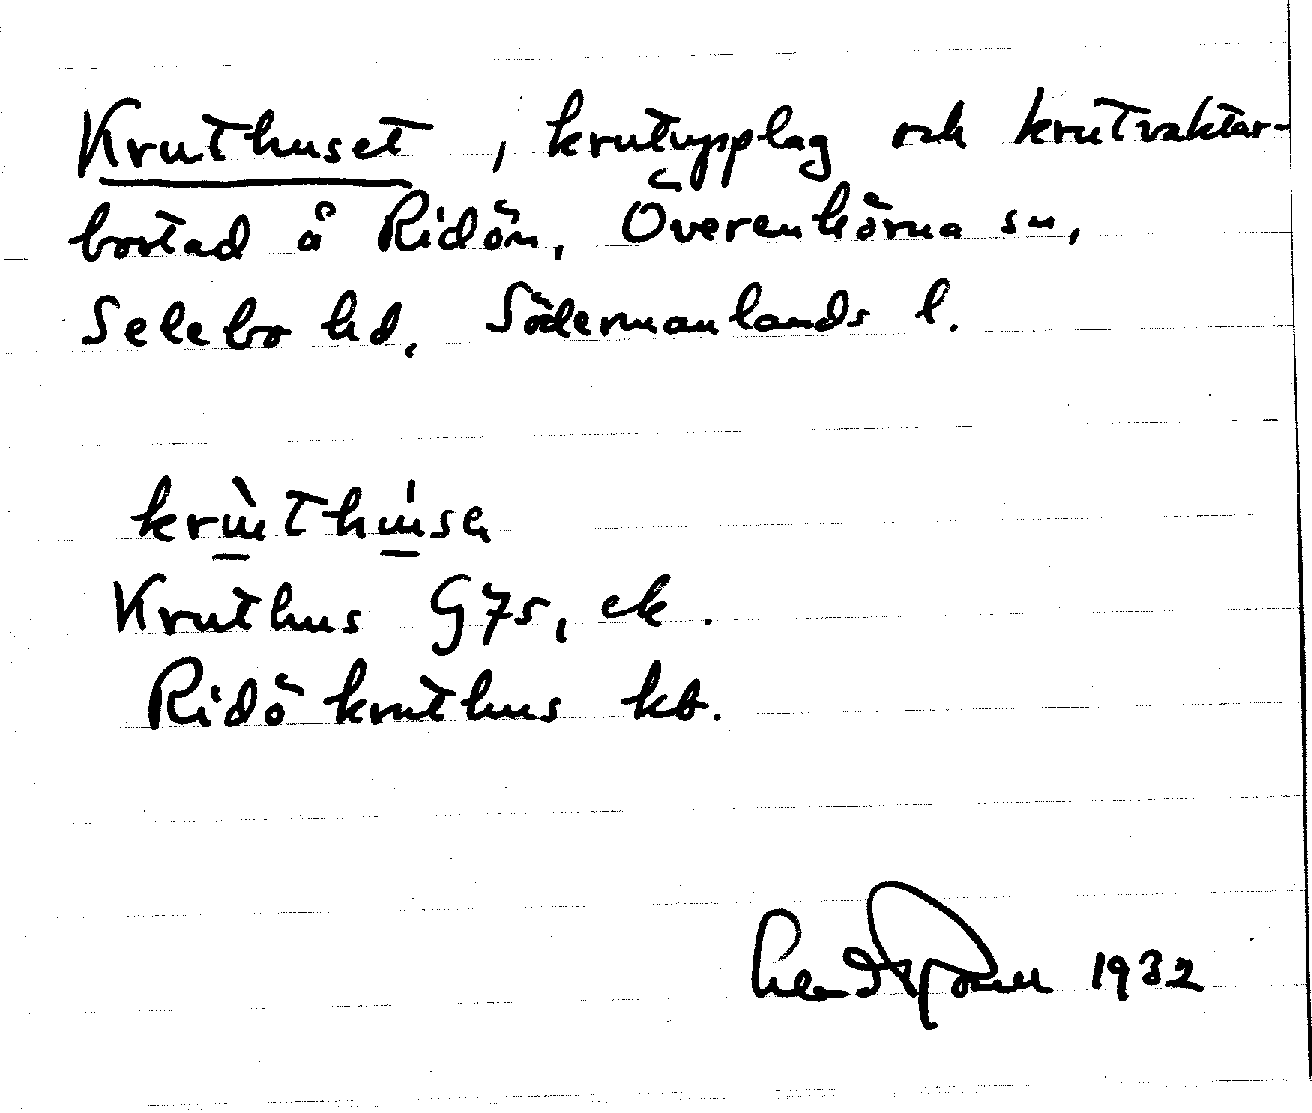 Kruthuset, krutupplag och krutvaktar-
bostad å Ridön, Överenhörna sn,
Selebo hd, Södermanlands l.
Kruthus G75, ek.
Ridö kruthus kb.
1932